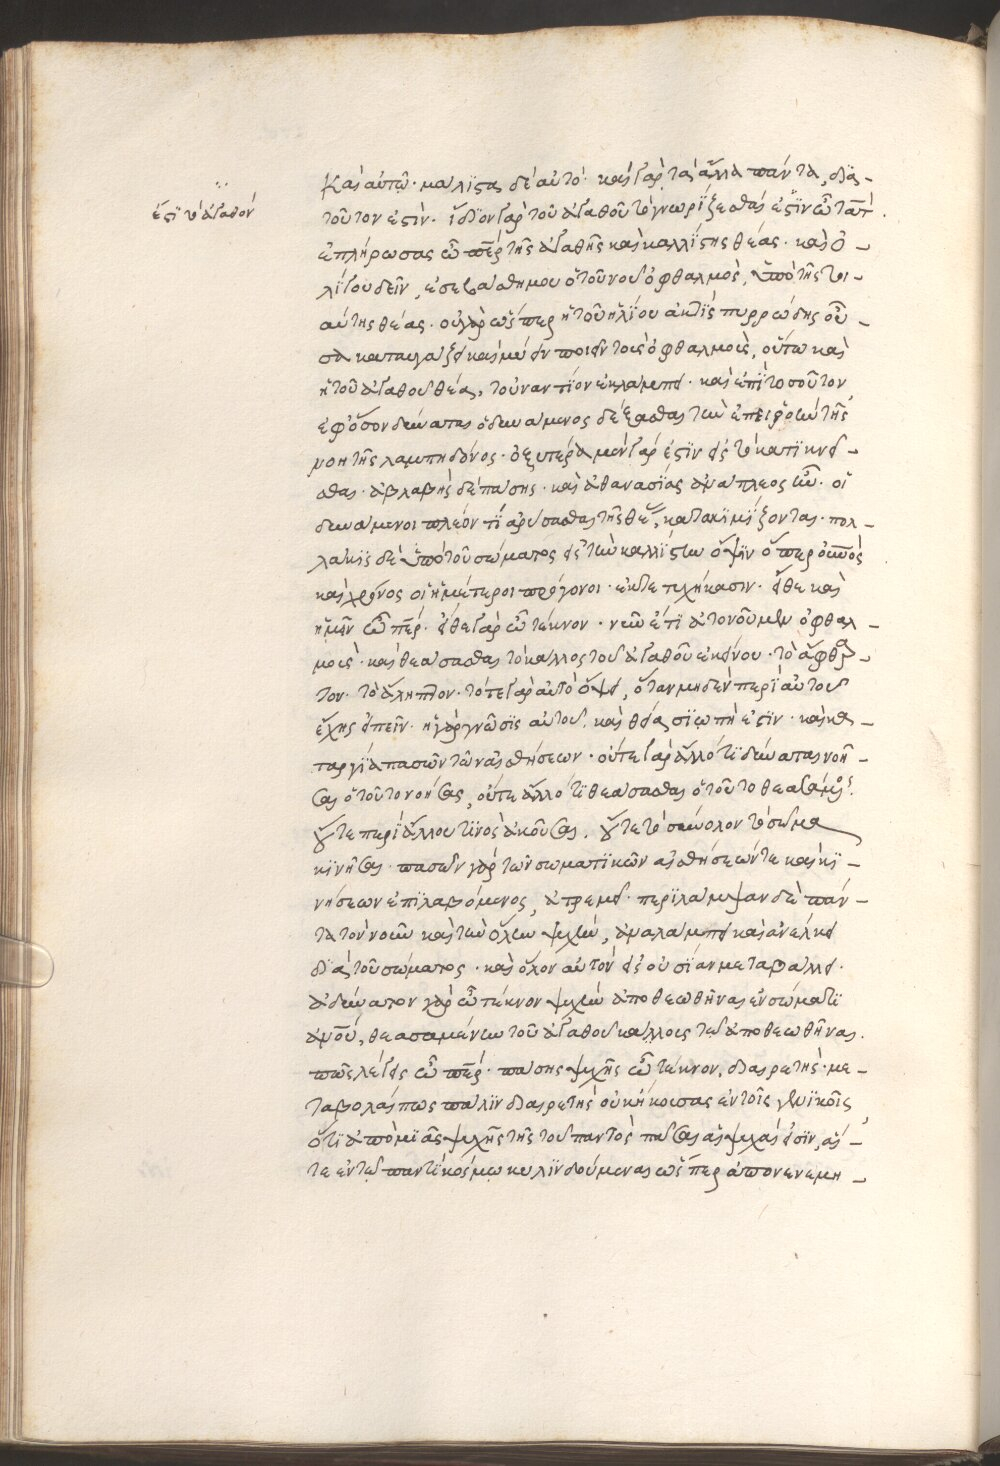 ἔστι τὸ ἀγαθόν
καὶ αὐτῷ· μάλιστα δὲ αὐτό· καὶ γὰρ τὰ ἄλλα πάντα, διὰ –
τοῦτον ἐστὶν· ἴδιον γὰρ τοῦ ἀγαθοῦ τὸ γνωρίζεσθαί ἐστιν ὦ τάτ.
ἐπλήρωσας ὦ περ τῆς ἀγαθῆς καὶ καλλίστης θέας· καὶ ὀ –
λίγου δεῖν, ἐσεβάσθη μου ὁ τοῦ νοῦ ὀφθαλμὸς, ὑπὸ τῆς τοι –
αύτης θέας· οὐ γὰρ ὥσπερ ἡ τοῦ ἡλίου ἀκτὶς πυρρώδης οὖ –
σα καταυγάζει καὶ μύειν ποιεῖ τοὺς ὀφθαλμοὺς, οὕτω καὶ
ἡ τοῦ ἀγαθοῦ θέα, τοὐναντίον ἐκλάμπει· καὶ ἐπὶ τοσοῦτον
ἐφ' ὅσον δύναται ὁ δυνάμενος δέξασθαι τὴν ἐπεισροὴν τῆς
νοητῆς λαμπηδόνος· ὀξυτέρα μὲν γάρ ἐστιν εἰς τὸ κατικνεῖ –
σθαι· ἀβλαβὴς δὲ πάσης· καὶ ἀθανασίας ἀνάπλεος ὢν· οἱ
δυνάμενοι πλέον τι ἀρύσασθαι τῆς θέας, κατακιμίζονται· πολ –
λάκις δὲ ὑπὸ τοῦ σώματος εἰς τὴν καλλίστην ὄψιν ὅπερ οὐρανὸς
καὶ χρόνος οἱ ἡμέτεροι πρόγονοι· ἐντετυχήκασιν· εἴθε καὶ
ἡμεῖς ὦ περ· εἴθε γὰρ ὦ τέκνον· νῦν ἔτι ἀτονοῦμεν ὀφθαλ –
μοὺς· καὶ θεάσασθαι τὸ κάλλος τοῦ ἀγαθοῦ ἐκείνου· τὸ ἄφθαρ –
τον· τὸ ἄληπτον· τότε γὰρ αὐτὸ ὄψει, ὅταν μηδὲν περὶ αὐτοῦ
ἔχῃς εἰπεῖν· ἡ γὰρ γνῶσις αὐτοῦ, καὶ θεία σιωπή ἐστιν· καὶ κα –
ταργία πασῶν τῶν αἰσθήσεων· οὔτε γὰρ ἄλλό τι δύναται νοῆ –
σαι ὁ τοῦτο νοήσας, οὔτε ἄλλό τι θεάσασθαι ὁ τοῦτο θεασάμενος·
οὔτε περὶ ἄλλου τινὸς ἀκοῦσαι. οὔτε τὸ σύνολον τὸ σῶμα
κινῆσαι· πασῶν γὰρ τῶν σωματικῶν αἰσθήσεών τε καὶ κι –
νήσεων ἐπιλαβόμενος, ἀτρεμεῖ· περιλάμψαν δὲ πάν –
τα τὸν νοῦν καὶ τὴν ὅλην ψυχὴν, ἀναλάμπει καὶ ἀνέλκει
διὰ τοῦ σώματος· καὶ ὅλον αὐτὸν εἰς οὐσίαν μεταβάλλει·
ἀδύνατον γὰρ ὦ τέκνον ψυχὴν ἀποθεωθῆναι ἐν σώματι
ἀνοῦ, θεασαμένην τοῦ ἀγαθοῦ κάλλους τῷ ἀποθεωθῆναι.
πῶς λέγεις ὦ περ· πάσης ψυχῆς ὦ τέκνον, διαιρετῆς· με –
ταβολαί πως πάλιν διαιρετῆς· οὐκ ἤκουσας ἐν τοῖς γενικοῖς,
ὅτι ἀπὸ μιᾶς ψυχῆς τῆς τοῦ παντὸς πᾶσαι αἱ ψυχαί εἰσιν, αἵ –
τε ἐν τῷ παντὶ κόσμῳ κυλινδούμεναι ὥσπερ ἀπονενεμη –